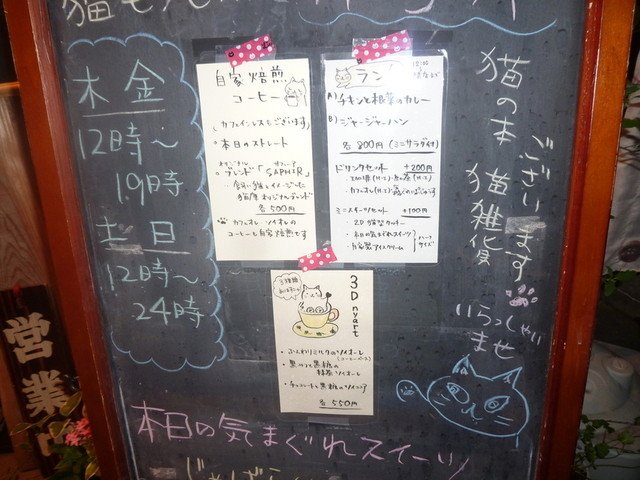 猫
木 金
12時～
19時
土 日
12時～
24時
自家焙煎
コーヒー
カフェインレスもございます
・本日のストレート
ブレンド「SAPHIR」
各500円
コーヒーも自家焙煎です
ラン
A) チキンと根菜のカレー
B) ジャージャーハン
各800円(ミニサラダ付)
ドリンクセット +200円
ミニスイーツセット +100円
・本日の気まぐれスイーツ
・自家製アイスクリーム
ハーフサイズ
3D nyart
・ふんわりミルクのソイオーレ
・黒ごまと黒糖の
抹茶ソイオーレ
各550円
猫の本 猫雑貨
ございます
いらっしゃい
ませ
営業中
本日の気まぐれスイーツ